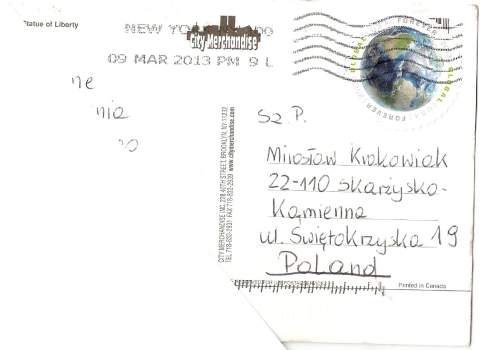 Statue of Liberty
NEW YO
City Merchandise
09 MAR 2013 PM 9 L
GLOBAL FOREVER
GLOBAL FOREVER
ne
nia
CITY MERCHANDISE INC. 228 40TH STREET, BROOKLYN, NY 11232
TEL 718-832-2931 FAX 718-832-2939 www.citymerchandise.com
Sz. P.
Mirosław Krakowiak
22-110 Skarżysko-
Kamienna
ul. Świętokrzyska 19
Poland
Printed in Canada